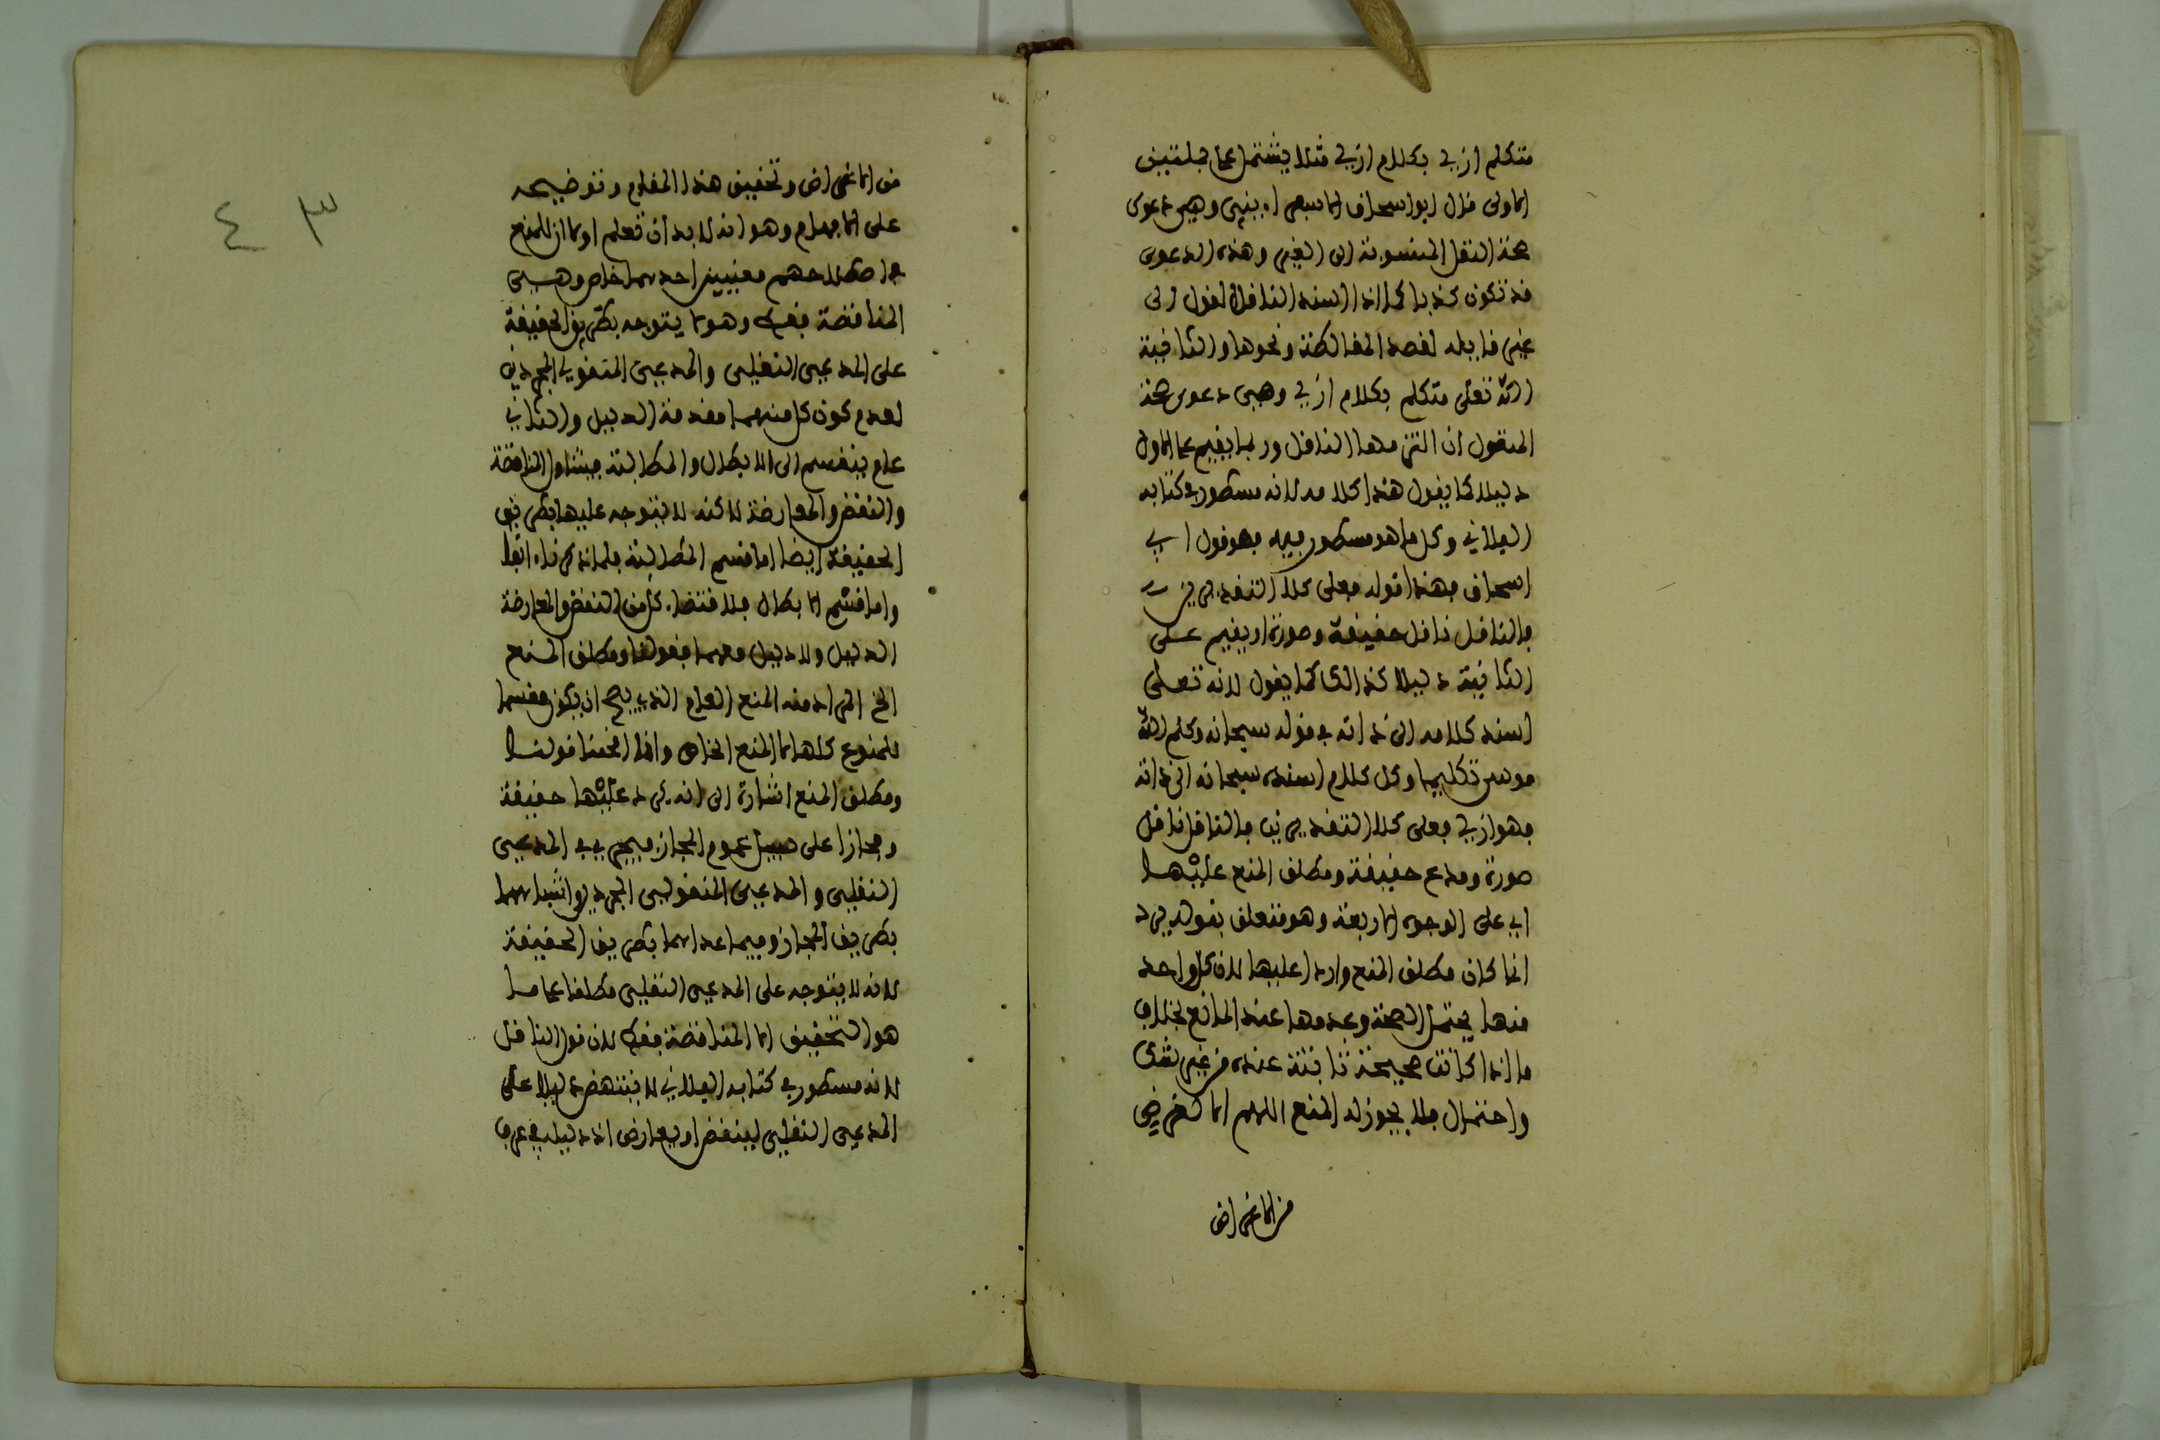 متكلم ازلي بكلام ازلي مثلا يشتمل على جملتين
الاولى قال ابو اسحاق الاسفراييني وهي دعوى
صحة النقل المنسوبة الى الغير وهذه الدعوى
قد تكون كذبا كما اذا اسند الناقل القول الى
غير قايله لقصد المغالطة ونحوها والثانية
الله تعلى متكلم بكلام ازلي وهي دعوى صحة
المنقول ان التزمها الناقل وربما يقيم على الاول
دليلا كما يقول هذا كلامه لانه مسطور في كتابه
الفلاني وكل ما هو مسطور فيه فهو قول ابي
اسحاق فهذا قوله فعلى كلا التقديرين
فالناقل ناقل حقيقة وصورة او يقيم على
الثانية دليلا كذالك كما يقول لانه تعلى
اسند كلامه الى ذاته في قوله سبحانه وكلم الله
موسى تكليما وكل كلام اسنده سبحانه الى ذاته
فهو ازلي فعلى كلا التقديرين فالناقل ناقل
صورة ومدع حقيقة ومطلق المنع عليها
اي على الوجوه الاربعة وهو متعلق بقوله يرد
انما كان مطلق المنع واردا عليها لان كل واحد
منها يحتمل الصحة وعدمها عند المانع بخلاف
ما اذا كانت صحيحة ثابتة عنده من غير شك
واحتمال فلا يجوز له المنع اللهم الا لغرض
من الاغراض
٣ ٤
من الاغراض وتحقيق هذا المقام وتوضيحه
على الاجمال وهو انه لا بد ان تعلم اولا ان للمنع
في اصطلاحهم معنيين احدهما خاص وهي
المناقضة فقط وهو لا يتوجه بطريق الحقيقة
على المدعى النقلي والمدعى المنقول المجردين
لعدم كون كل منهما مقدمة الدليل والثاني
عام ينقسم الى الابطال والمطالبة فيتناول المناقضة
والنقض والمعارضة لاكنه لا يتوجه عليها بطريق
الحقيقة ايضا اما قسم المطالبة فلما ذكرناه انفا
واما قسم الابطال فلاقتضاء كل من النقض والمعارضة
الدليل ولا دليل معهما فقولنا ومطلق المنع
الخ المراد منه المنع العام الذي يصح ان يكون مقسما
للمنوع كلها لا المنع الخاص وانما اقحمنا قولنا
ومطلق المنع اشارة الى انه يرد عليها حقيقة
ومجازا على سبيل عموم المجاز فيجري في المدعى
النقلي والمدعى المنقولي المجرد واشباههما
بطريق المجاز وفيما عداهما بطريق الحقيقة
لانه لا يتوجه على المدعى النقلي مطلقا على ما
هو التحقيق الا المناقضة فقط لان قول الناقل
لانه مسطور في كتابه الفلاني لا ينتهض دليلا على
المدعى النقلي لينقض او يعارض اذ دليله في عرف